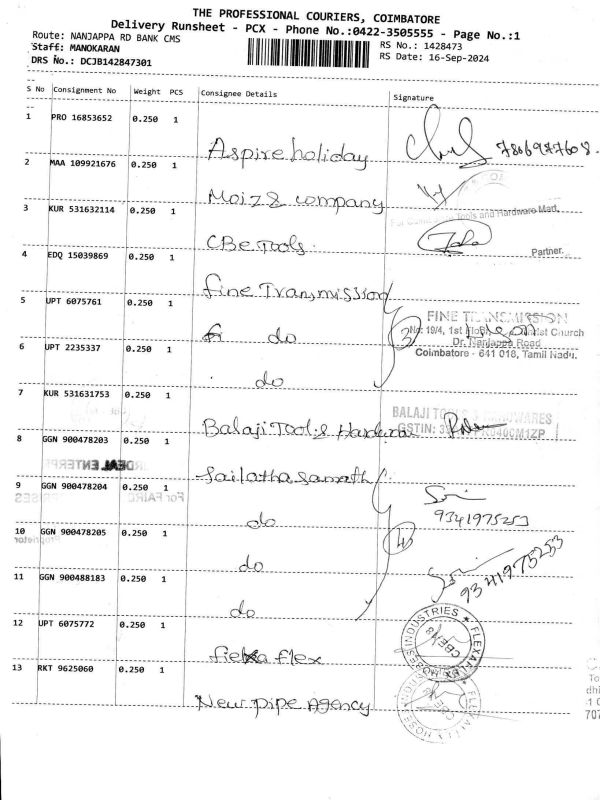 THE PROFESSIONAL COURIERS, COIMBATORE
Delivery Runsheet - PCX - Phone No.:0422-3505555 - Page No.:1
Route: NANJAPPA RD BANK CMS
RS No.: 1428473
Staff: MANOKARAN
RS Date: 16-Sep-2024
DRS No.: DCJB142847301
S No Consignment No Weight PCS Consignee Details Signature
1 PRO 16853652 0.250 1
Aspire holiday
2 MAA 109921676 0.250 1
Moiz & company
3 KUR 531632114 0.250 1
Tools and Hardware Mart,
CBe Tools.
Partner.
4 EDQ 15039869 0.250 1
fine Transmission
5 UPT 6075761 0.250 1
FINE TRANSMISSION
do
3
No: 19/4, 1st Church
Dr. Nanjappa Road
6 UPT 2235337 0.250 1
Coimbatore - 641 018, Tamil Nadu.
do
7 KUR 531631753 0.250 1
BALAJI
Balaji Tools & Hardware
GSTIN:
8 GGN 900478203 0.250 1
Sailatha Samath
9 GGN 900478204 0.250 1
do
9341975253
10 GGN 900478205 0.250 1
4
do
9341975253
11 GGN 900488183 0.250 1
do
12 UPT 6075772 0.250 1
INDUSTRIES ★ FLEXAFLEX HOSE
CBE/18
flex
13 RKT 9625060 0.250 1
New pipe Agency